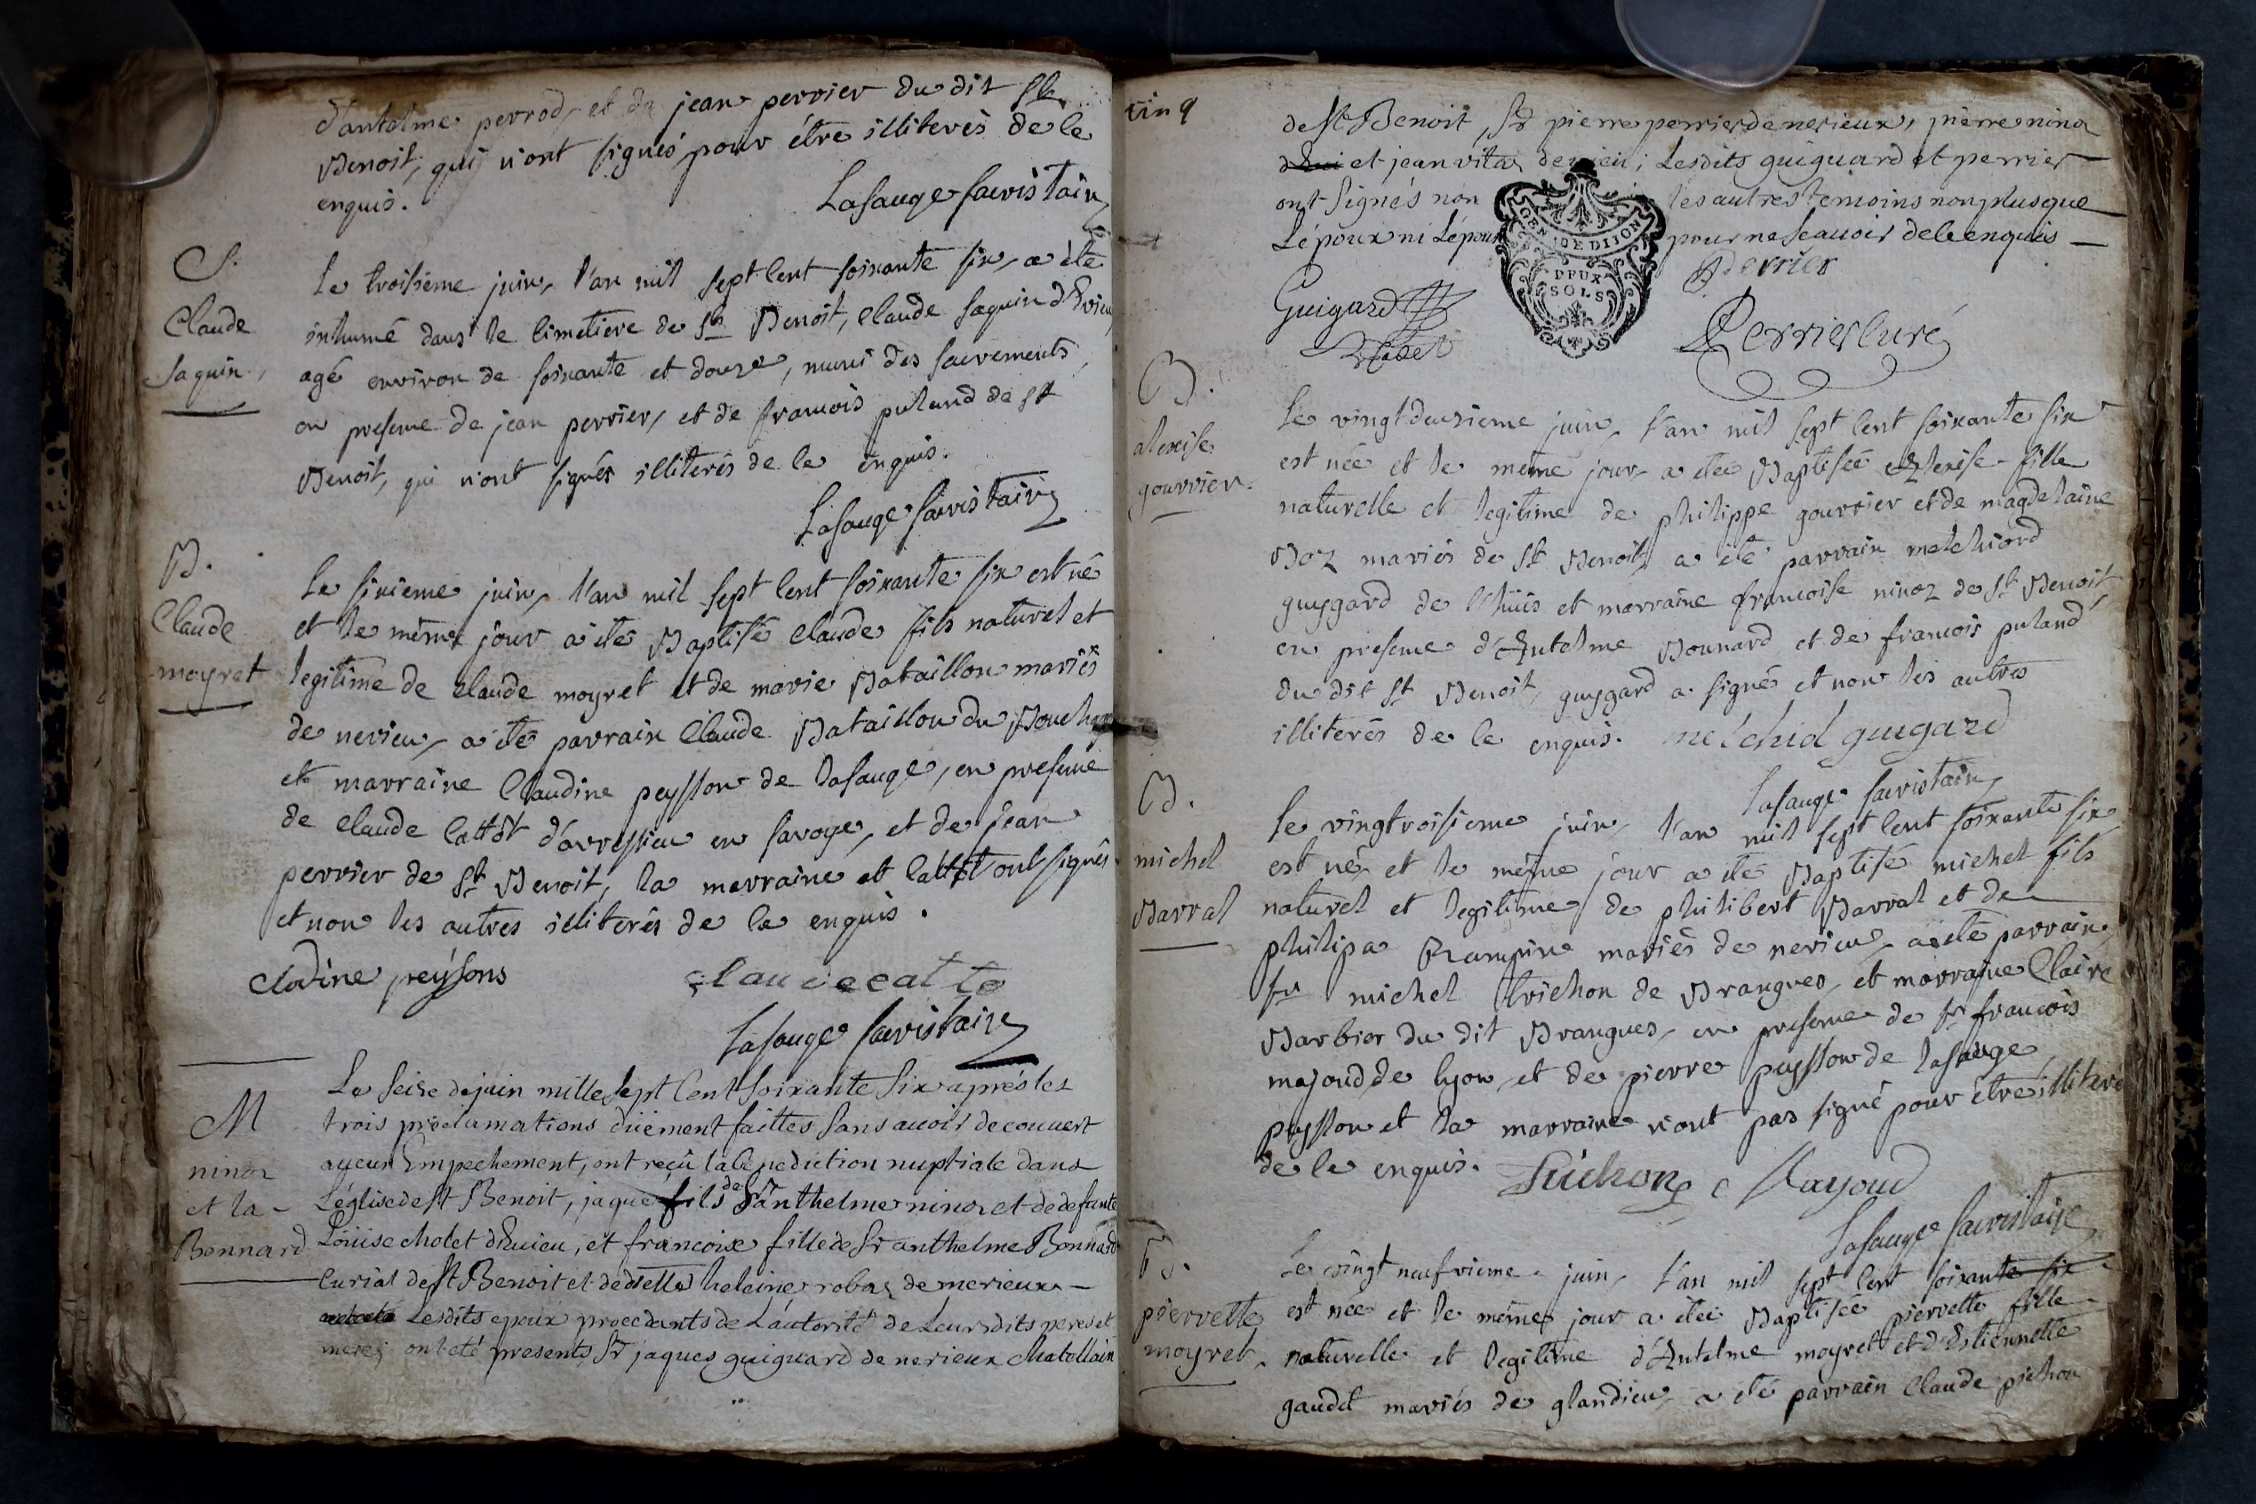 d'antelme perrod, et de jean perrier du dit St
Benoit, qui n'ont signés pour être illiterés de ce
enquis.
Lasauge sacristain
S.
Claude
saquin
Le troisieme juin, l'an mil sept cent soixante six, a été
inhumé dans le cimetiere de St Benoit, Claude saquin d'Evieu,
agé environ de soixante et douze, muni des sacrements,
en presence de jean perrier, et de francois puland de St
Benoit, qui n'ont signés illiterés de ce enquis.
Lasauge sacristain
B.
Claude
moyret
Le sixieme juin, l'an mil sept cent soixante six est né
et le même jour a été Baptisé Claude fils naturel et
legitime de Claude moyret et de marie Bataillon mariés
de nerieu, a été parrain Claude Bataillon du Bouchage
et marraine Claudine peysson de lasauge, en presence
de Claude Cattôt d'avressieu en savoye, et de jean
perrier de St Benoit, la marraine et Cattôt ont signés
et non les autres illiterés de ce enquis.
clodine peysons
claudecatto
Lasauge sacristain
M
ninoz
et la
Bonnard
Le seise de juin mille sept cent soixante six aprés les
trois proclamations düement faittes sans avoir decouvert
aucun Empechement, ont reçû la benediction nuptiale dans
L'église de St Benoit, jaque fils de Sr anthelme ninoz et de defunte
Loüise cholet d'Evieu, et francoise fille de Sr anthelme Bonnard
Curial de St Benoit et de dselle heleine robaz de merieux
Lesdits epoux procedants de L'autorité de Leursdits peres et
meres ont été presents Sr jaques guiguard de nerieux chatellain
cinq
de St Benoit, Sr pierre perrier de nerieux, pierre ninoz
et jean vitaz d'evieu; Lesdits guiguard et perrier
ont signés non les autres temoins non plus que
L'époux ni L'épouse pour ne sçauoir de ce enquis
GEN. DE DIJON
DEUX
SOLS
Guigard
Perrier
Perrier curé
B.
alexise
gourrier.
Le vingt deuzieme juin, l'an mil sept cent soixante six
est née et le même jour a été Baptisée Alexise fille
naturelle et legitime de philippe gourrier et de magdelaine
Boz mariés de St Benoit, a été parrain melchiord
guygard de l'huis et marraine francoise ninoz de St Benoit,
en presence d'Antelme Bonnard et de francois puland
du dit St Benoit, guygard a signé et non les autres
illiterés de ce enquis. melchid guigard
Lasauge sacristain
B.
michel
Barral
Le vingtroisieme juin, l'an mil sept cent soixante six
est né, et le même jour a été Baptisé michel fils
naturel et legitime de philibert Barral et de
philipa Rampin mariés de nerieu, a été parrain
Sr michel trichon de Brangues, et marraine Claire
Barbier du dit Brangues, en presence de Sr francois
majoud de lyon, et de pierre peysson de lasauge
peysson et la marraine n'ont pas signé pour être illiteré
de ce enquis. Trichon Mayoud
Lasauge sacristain
B.
pierrette
moyret
Le vingt neufvieme juin, l'an mil sept cent soixante six
est née et le même jour a été Baptisée pierrette fille
naturelle et legitime d'Antelme moyret et d'Estiennette
gaudet mariés de glandieu, a été parrain Claude pichon